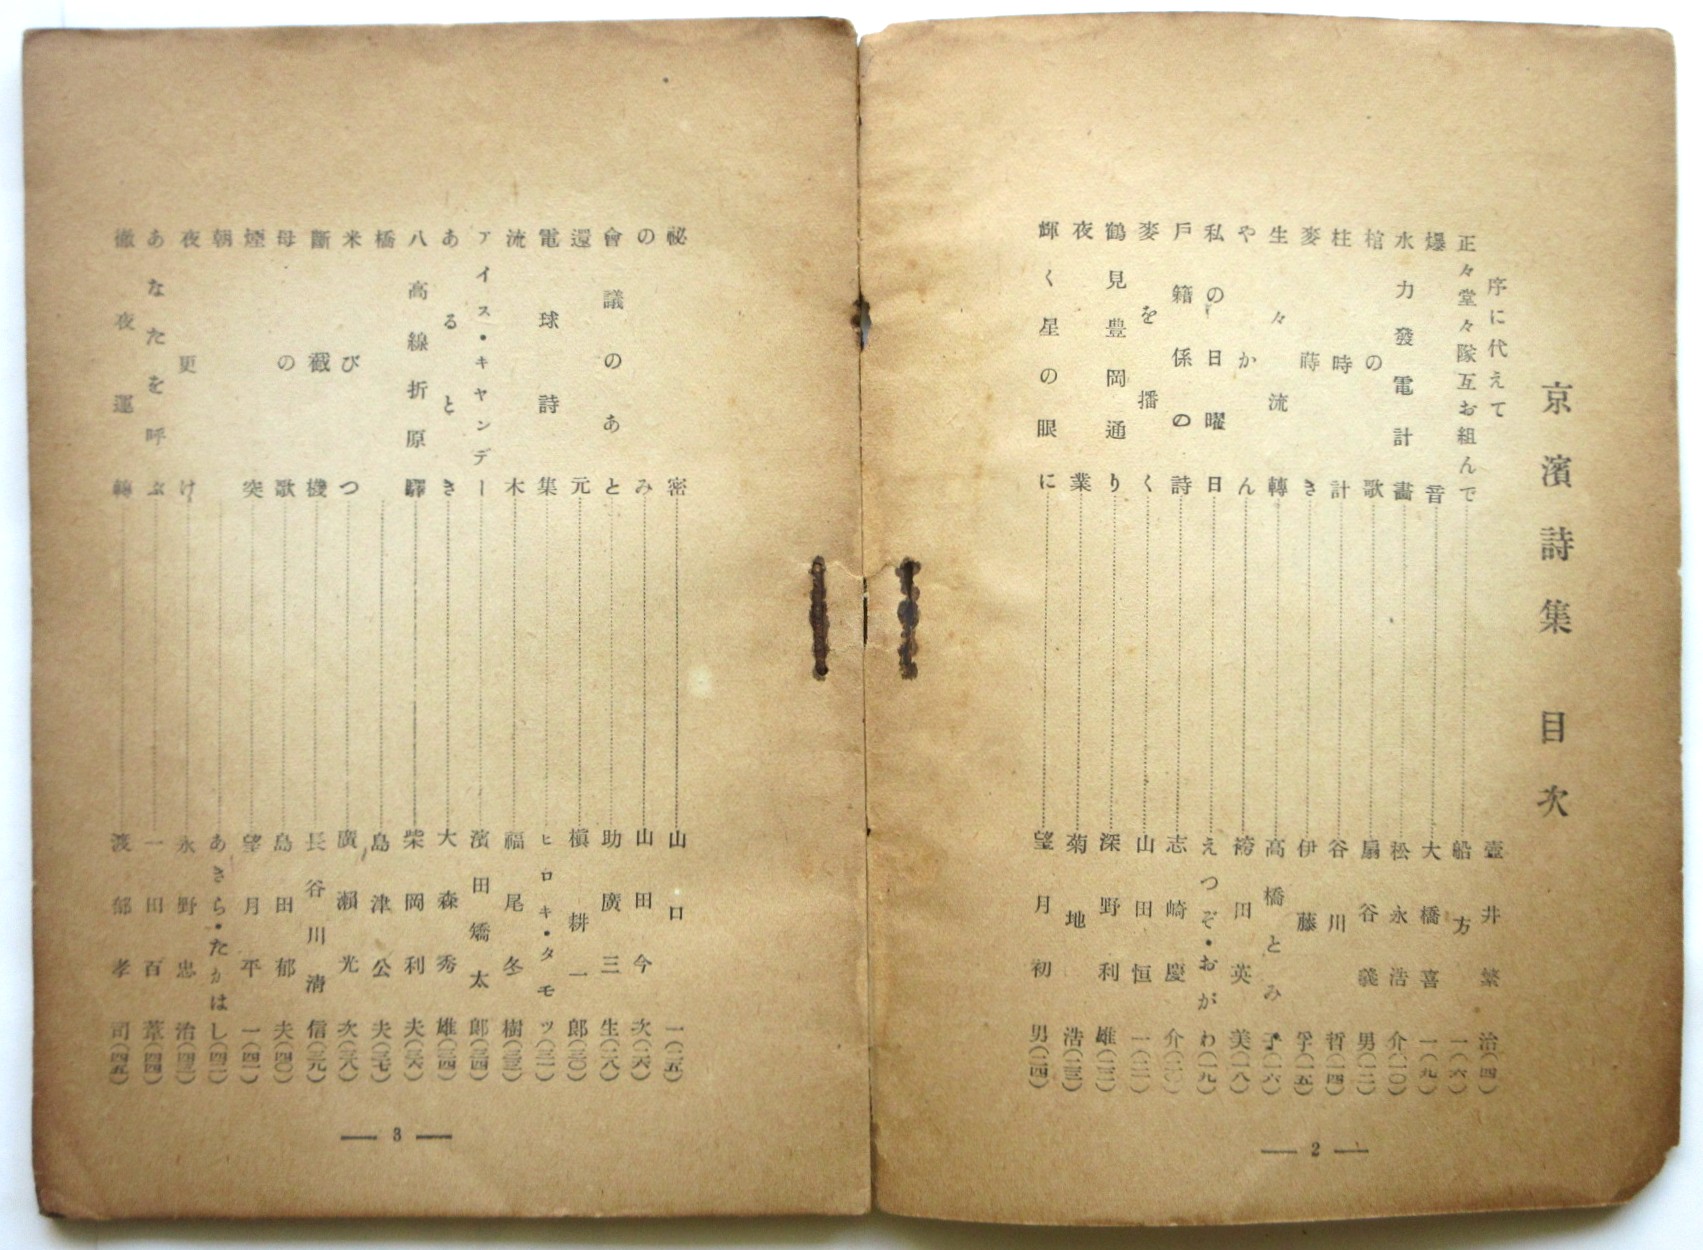 京濱詩集 目次
序に代えて 壺井繁治(四)
正々堂々隊互お組んで 船方一(六)
爆音 大橋喜一(九)
水力發電計畫 松永浩介(一〇)
棺の歌 扇谷義男(一二)
柱時計 谷川哲(一四)
麥蒔き 伊藤孚(一五)
生々流轉 高橋とみ子(一六)
やかん 袴田英美(一八)
私の日曜日 えつぞ・おがわ(一九)
戶籍係の詩 志崎慶介(二〇)
麥を播く 山田恒一(二一)
鶴見豊岡通り 深野利雄(二二)
夜業 菊地浩(二三)
輝く星の眼に 望月初男(二四)
— 2 —
祕密 山口一(二五)
のみ 山田今次(二六)
會議のあと 助廣三生(二八)
還元 槇耕一郎(三〇)
電球詩集 ヒロキ・タモツ(三一)
流木 福尾冬樹(三三)
アイス・キャンデー 濱田矯太郎(三四)
あるとき 大森秀雄(三四)
八高線折原驛 柴岡利夫(三六)
橋 島津公夫(三七)
米びつ 廣瀬光次(三八)
斷截機 長谷川淸信(三九)
母の歌 島田郁夫(四〇)
煙突 望月平一(四一)
朝 あきら・たかはし(四二)
夜更け 永野忠治(四三)
あなたを呼ぶ 一田百葦(四四)
徹夜運轉 渡郁孝司(四五)
— 3 —